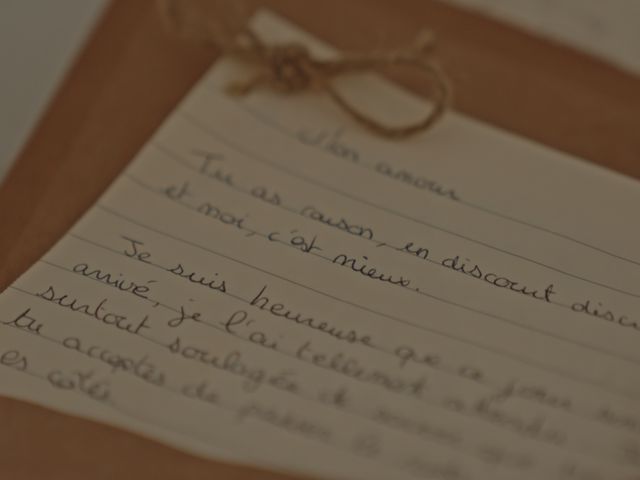 Mon amour
Tu as raison, en discourt discu
et moi, c'est mieux.
Je suis heureuse que ce jour
arrivé, je l'ai tellement attendu
surtout soulagée et
tu acceptes de passer
es côté